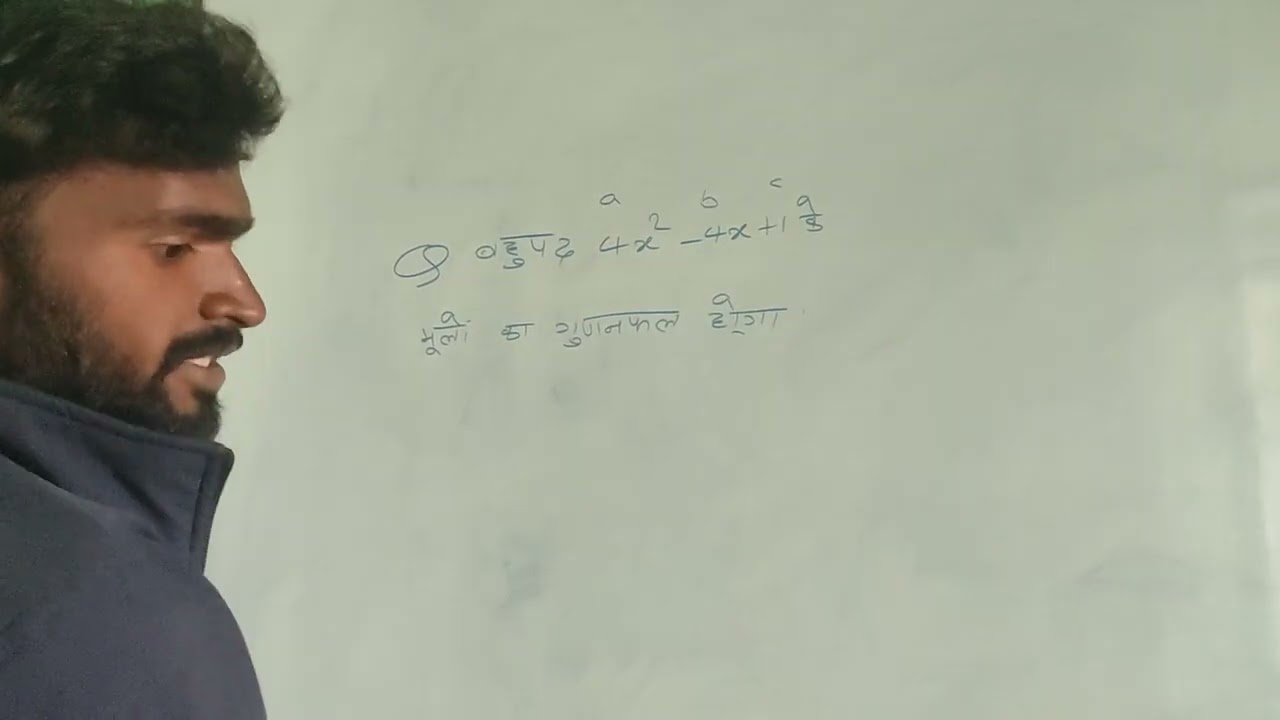 a b c
Q बहुपद 4x² -4x+1 के
मूलों का गुणनफल होगा